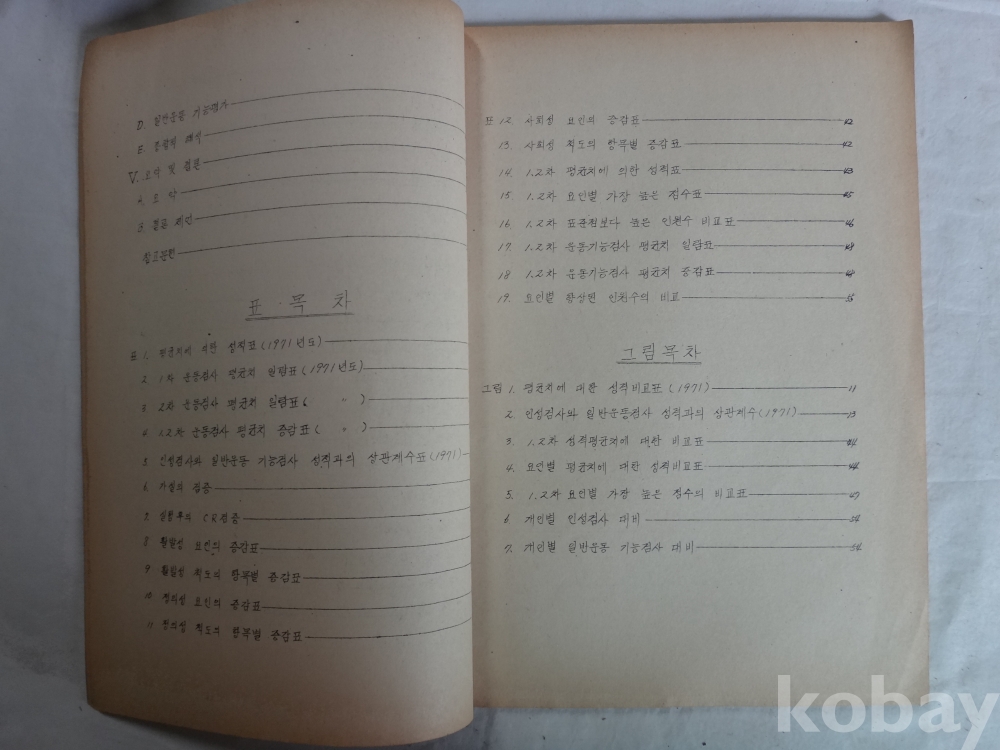 D. 일반운동 기능평가
E. 종합적 해석
V. 요약 및 결론
A. 요 약
B. 결론 제언
참고문헌
표 · 목 차
표 1. 평균치에 의한 성적표(1971년도)
2. 1차 운동검사 평균치 일람표(1971년도)
3. 2차 운동검사 평균치 일람표( 〃 )
4. 1.2차 운동검사 평균치 증감표( 〃 )
5. 인성검사와 일반운동 기능검사 성적과의 상관계수표(1971)
6. 가설의 검증
7. CR검증
8. 활발성 요인의 증감표
9. 활발성 척도의 항목별 증감표
10. 요인의 증감표
11. 척도의 항목별 증감표
표 12. 사회성 요인의 증감표 42
13. 사회성 척도의 항목별 증감표 42
14. 1.2차 평균치에 의한 성적표 43
15. 1.2차 요인별 가장 높은 점수표 45
16. 1.2차 표준점보다 높은 인원수 비교표 46
17. 1.2차 운동기능검사 평균치 일람표 48
18. 1.2차 운동기능검사 평균치 증감표
19. 요인별 향상된 인원수의 비교
그림목차
그림 1. 평균치에 대한 성적비교표(1971) 11
2. 인성검사와 일반운동검사 성적과의 상관계수(1971) 13
3. 1.2차 성적평균치에 대한 비교표 44
4. 요인별 평균치에 대한 성적비교표 44
5. 1.2차 요인별 가장 높은 점수의 비교표 47
6. 개인별 인성검사 대비 54
7. 개인별 일반운동 기능검사 대비 54
kobay